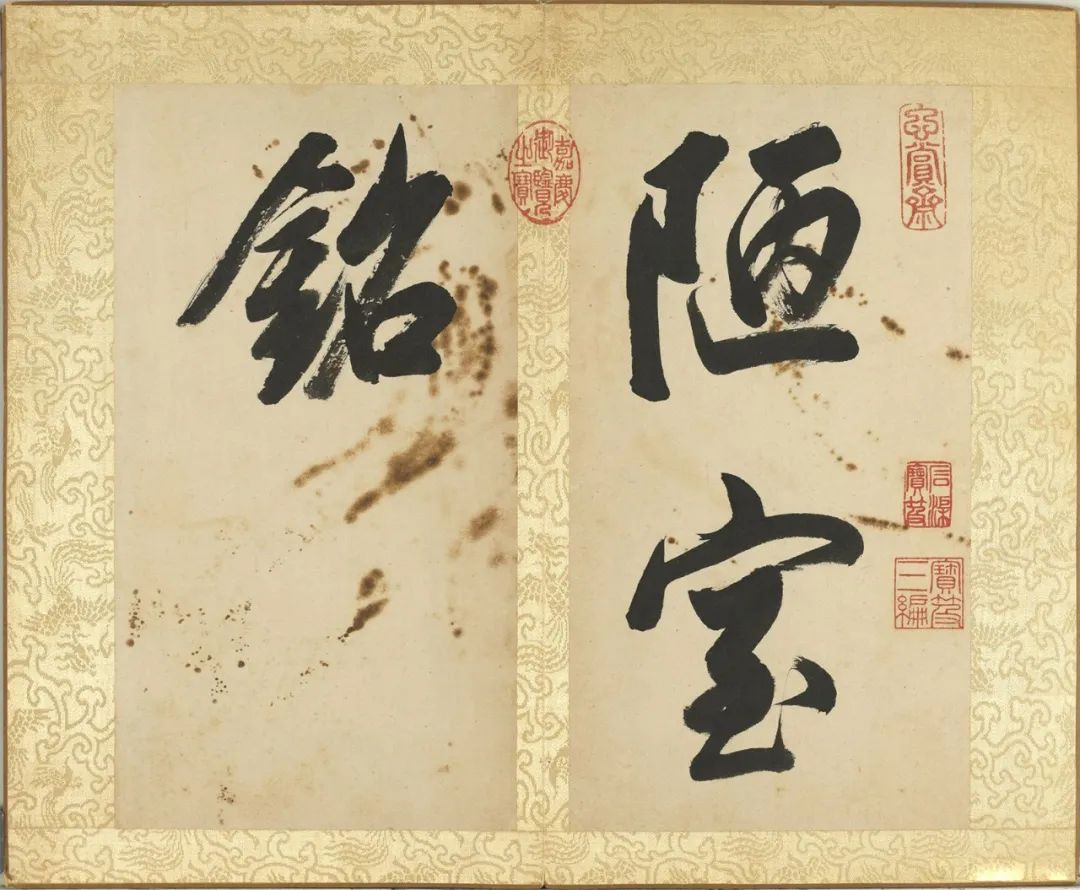 石渠寶笈
寶笈三編
陋室
嘉慶御覽之寶
銘